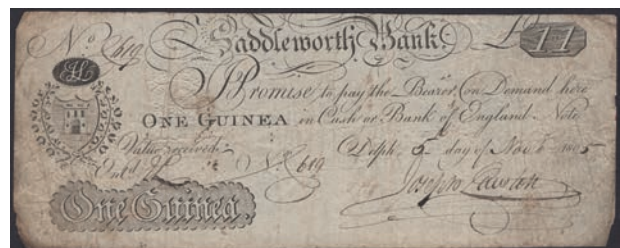 No. 619 Saddleworth Bank £ 1 1
I Promise to pay the Bearer on Demand here
ONE GUINEA in Cash or Bank of England Note
Value received
Ent.d No. 619 Delph 5 day of Nov. 1805
One Guinea.